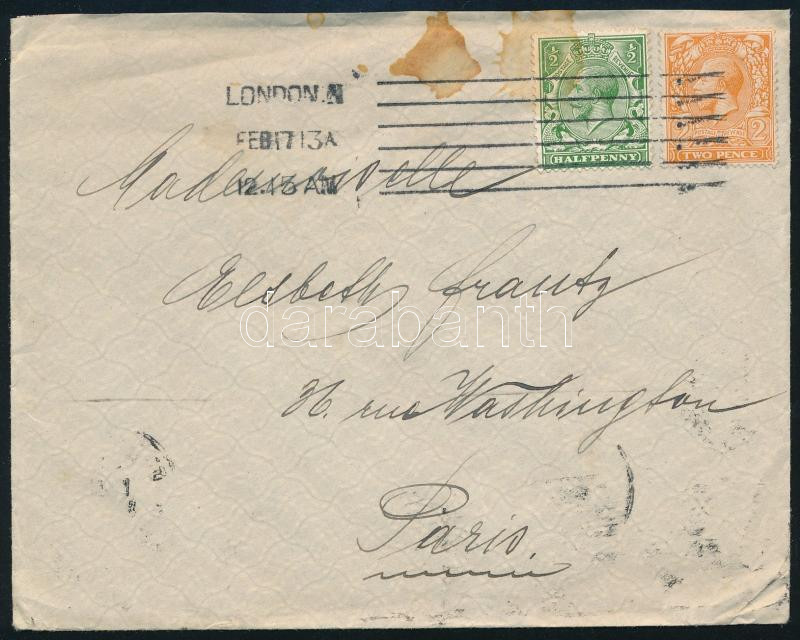 LONDON. N
FEB 17 13 A
12.15 AM
½ ½
HALFPENNY
2
TWO PENCE
Mademoiselle
Elsbeth Frantz
darabanth
36. rue Washington
Paris.